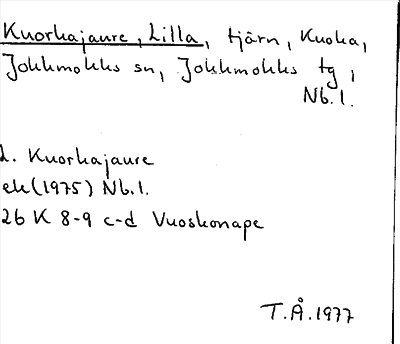 Kuorkajaure, Lilla, tjärn, Kuoka,
Jokkmokks sn, Jokkmokks tg,
Nb.l.
L. Kuorkajaure
ek(1975) Nb.l.
26 K 8-9 c-d Vuoskonape
T.Å.1977